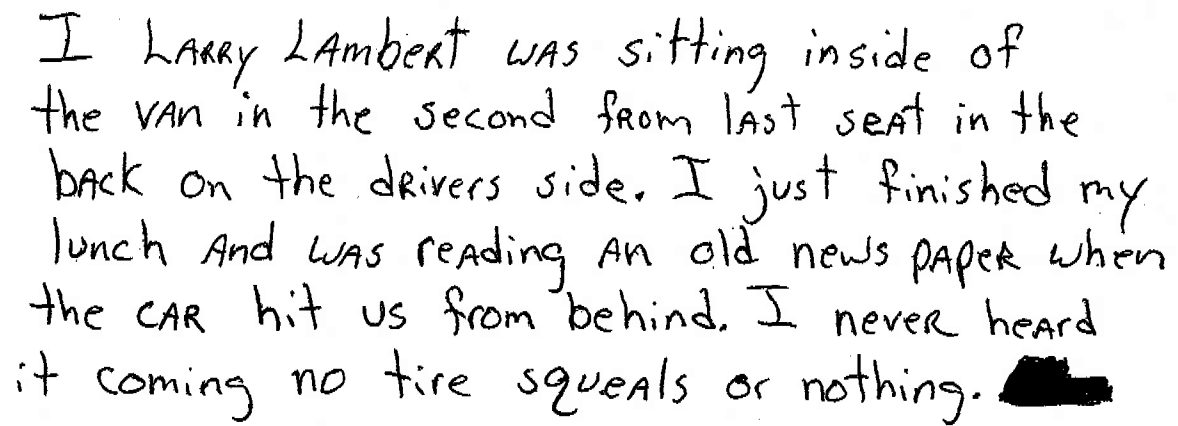 I LARRY LAmbeRt WAS sitting inside of
the VAn in the second fRom lAst seAt in the
bAck on the dRivers side. I just finished my
lunch And WAS reAding An old news pApeR when
the CAR hit us from behind. I neveR heArd
it coming no tire squeAls or nothing.